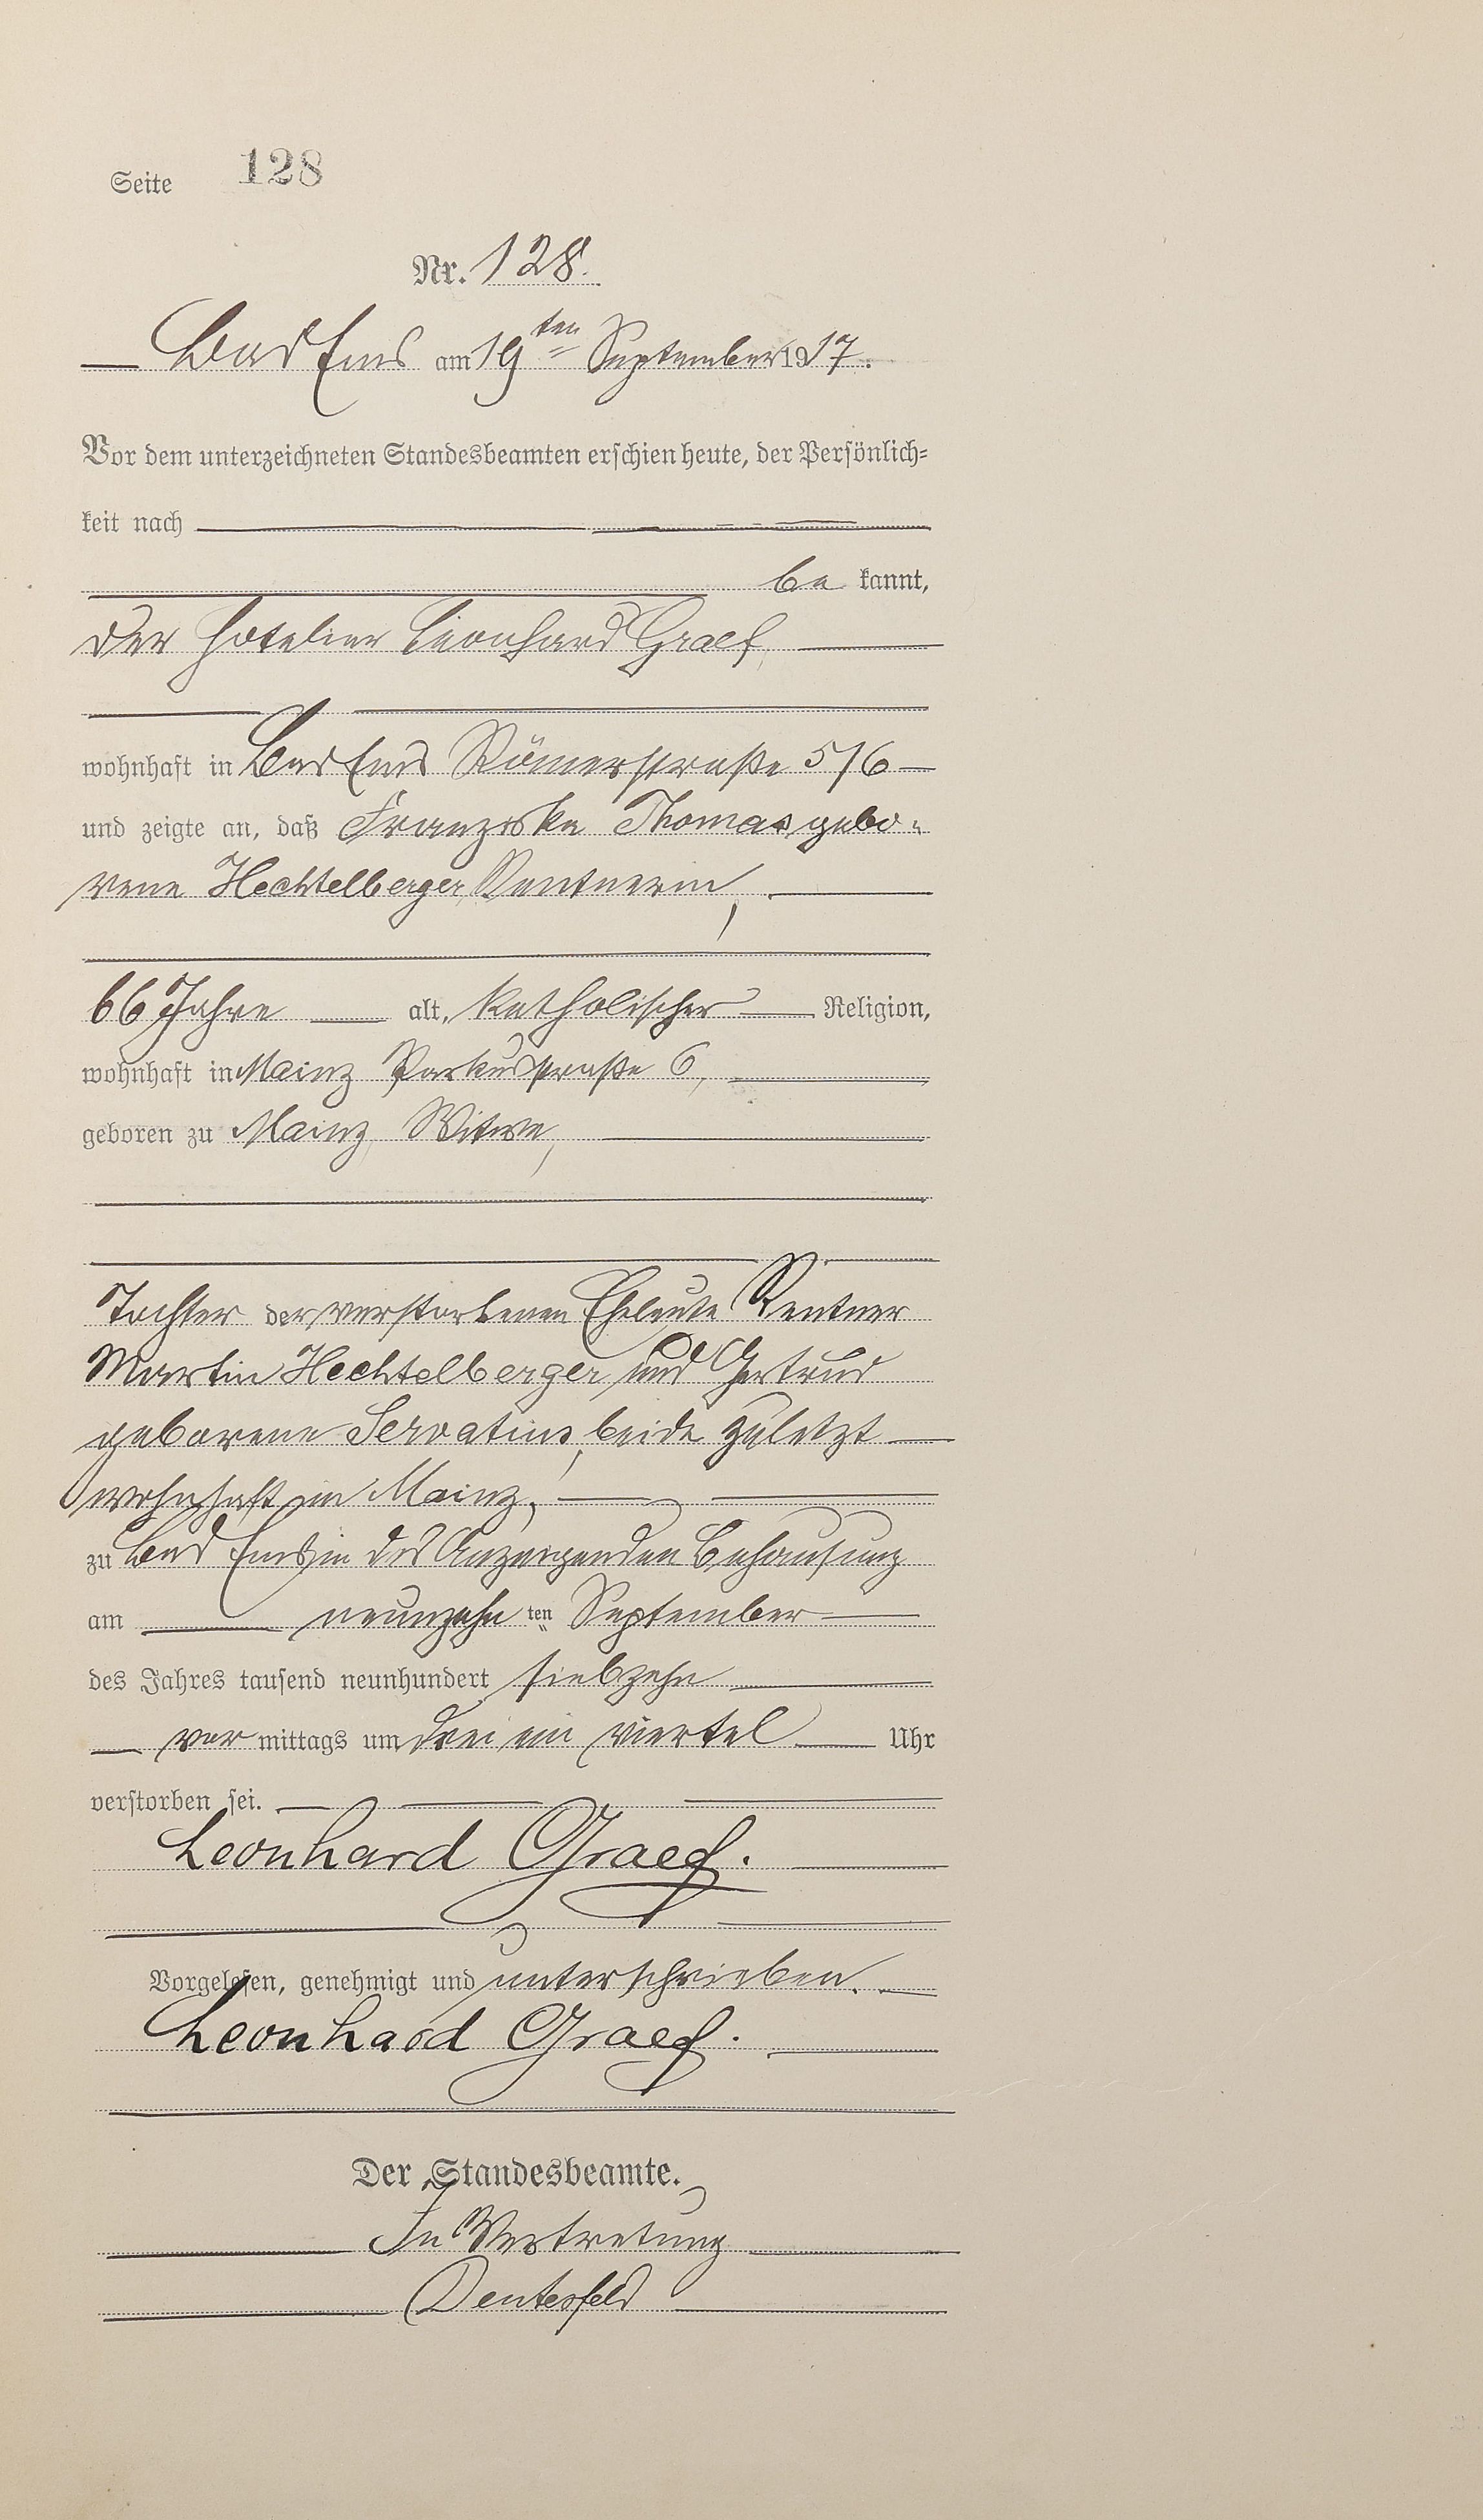 Seite 128
Nr. 128.
Bad Ems am 19ten September 1917.
Vor dem unterzeichneten Standesbeamten erschien heute, der Persönlich-
keit nach
be kannt,
der Hotelier Leonhard Graef,
wohnhaft in Bad Ems Römerstraße 5/6
und zeigte an, daß Franziska Thomas gebo-
rene Hechtelberger, Rentnerin,
66 Jahre alt, katholischer Religion,
wohnhaft in Mainz Parkusstraße 6,
geboren zu Mainz, Witwe,
Tochter der verstorbenen Eheleute Rentner
Martin Hechtelberger und Gertrud
geborene Servatius, beide zuletzt
wohnhaft in Mainz,
zu Bad Ems in des Anzeigenden Behausung
am neunzehn ten September
des Jahres tausend neunhundert siebzehn
vor mittags um drei ein viertel Uhr
verstorben sei.
Leonhard Graef.
Vorgelesen, genehmigt und unterschrieben.
Leonhard Graef.
Der Standesbeamte.
In Vertretung